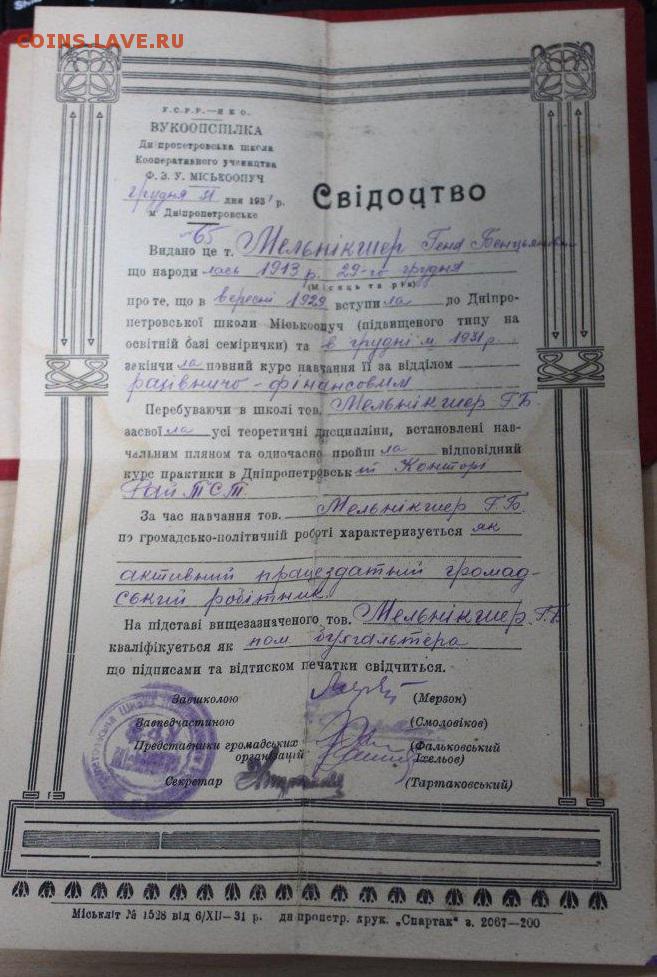 COINS.LAVE.RU
У.С.Р.Р.—Н К О.
ВУКООПСПІЛКА
Дніпропетровська школа
Кооперативного учеництва
Ф. З. У. МІСЬКООПУЧ
грудня 31 дня 1931 р.
м Дніпропетровське
Свідоцтво
65
Видано це т. Мельнікшер Геня Бенцьянівна
що народилась 1913 р. 29-го грудня
(Місяць та рік)
про те, що в вересні 1929 вступила до Дніпро-
петровської школи Міськоопуч (підвищеного типу на
освітній базі семірички) та в грудні м 1931 р.
закінчила повний курс навчання її за відділом
рахівничо-фінансовим
Перебуваючи в школі тов. Мельнікшер Г.Б.
засвоїла усі теоретичні дисципліни, встановлені нав-
чальним пляном та одночасно пройшла відповідний
курс практики в Дніпропетровській Конторі
Рай ТСТ.
За час навчання тов. Мельнікшер Г.Б.
по громадсько-політичній роботі характеризується як
активний працездатний громад-
ський робітник.
На підставі вищезазначеного тов. Мельнікшер Г.Б
кваліфікується як пом бухгальтера
що підписами та відтиском печатки свідчиться.
Завшколою (Мерзон)
Завпедчастиною (Смоловіков)
Представники громадських (Фальковський
організацій Іхельов)
Секретар (Тартаковський)
Міськліт № 1528 від 6/XII—31 р. дніпропетр. друк. „Спартак“ з. 2067—200